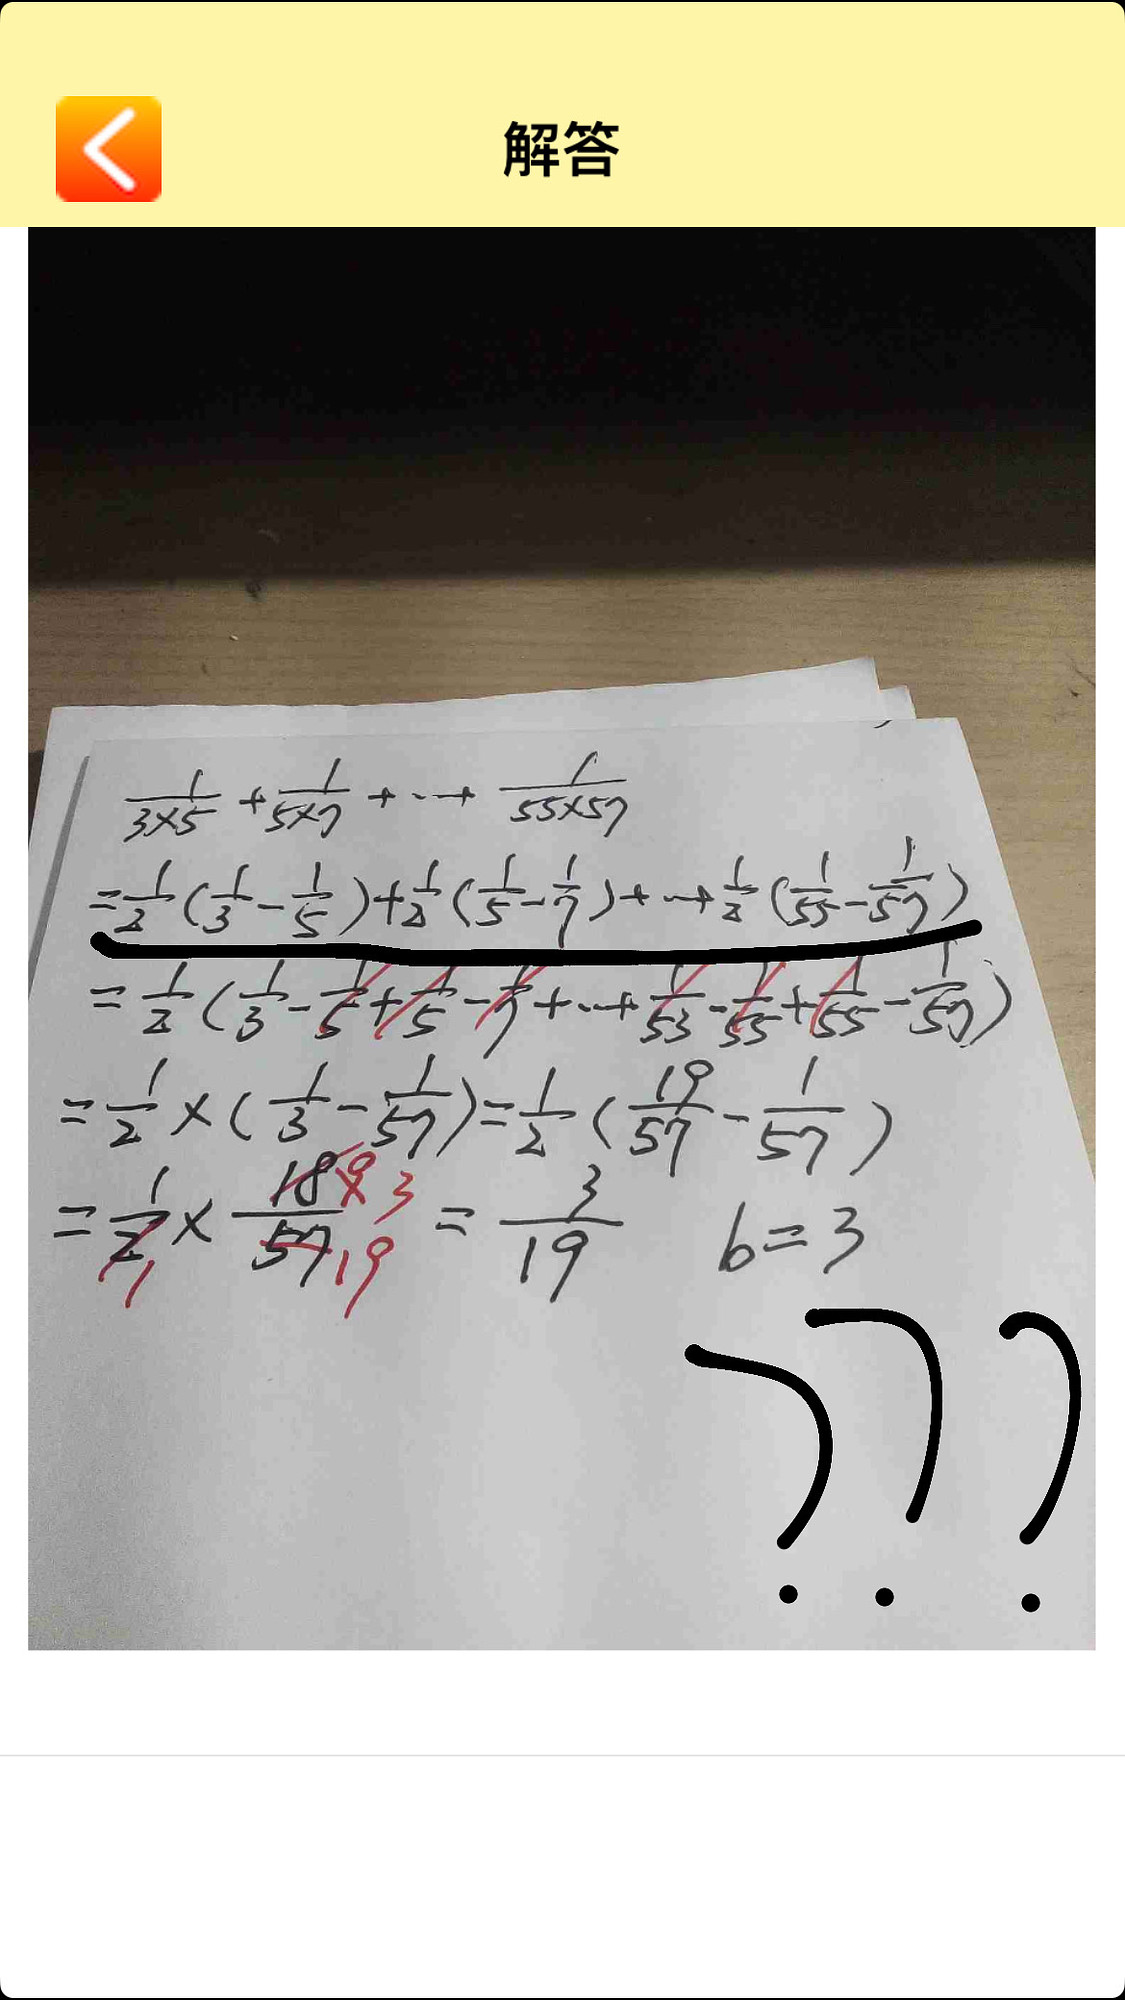 解答
1/(3×5) + 1/(5×7) + ··→ 1/(55×57)
= 1/2 (1/3 - 1/5) + 1/2 (1/5 - 1/7) + ··→ 1/2 (1/55 - 1/57)
= 1/2 (1/3 - 1/5 + 1/5 - 1/7 + ··→ 1/53 - 1/55 + 1/55 - 1/57)
= 1/2 × (1/3 - 1/57) = 1/2 (19/57 - 1/57)
= 1/2 × 18/57 = 3/19 b = 3
1 9 3 19
???